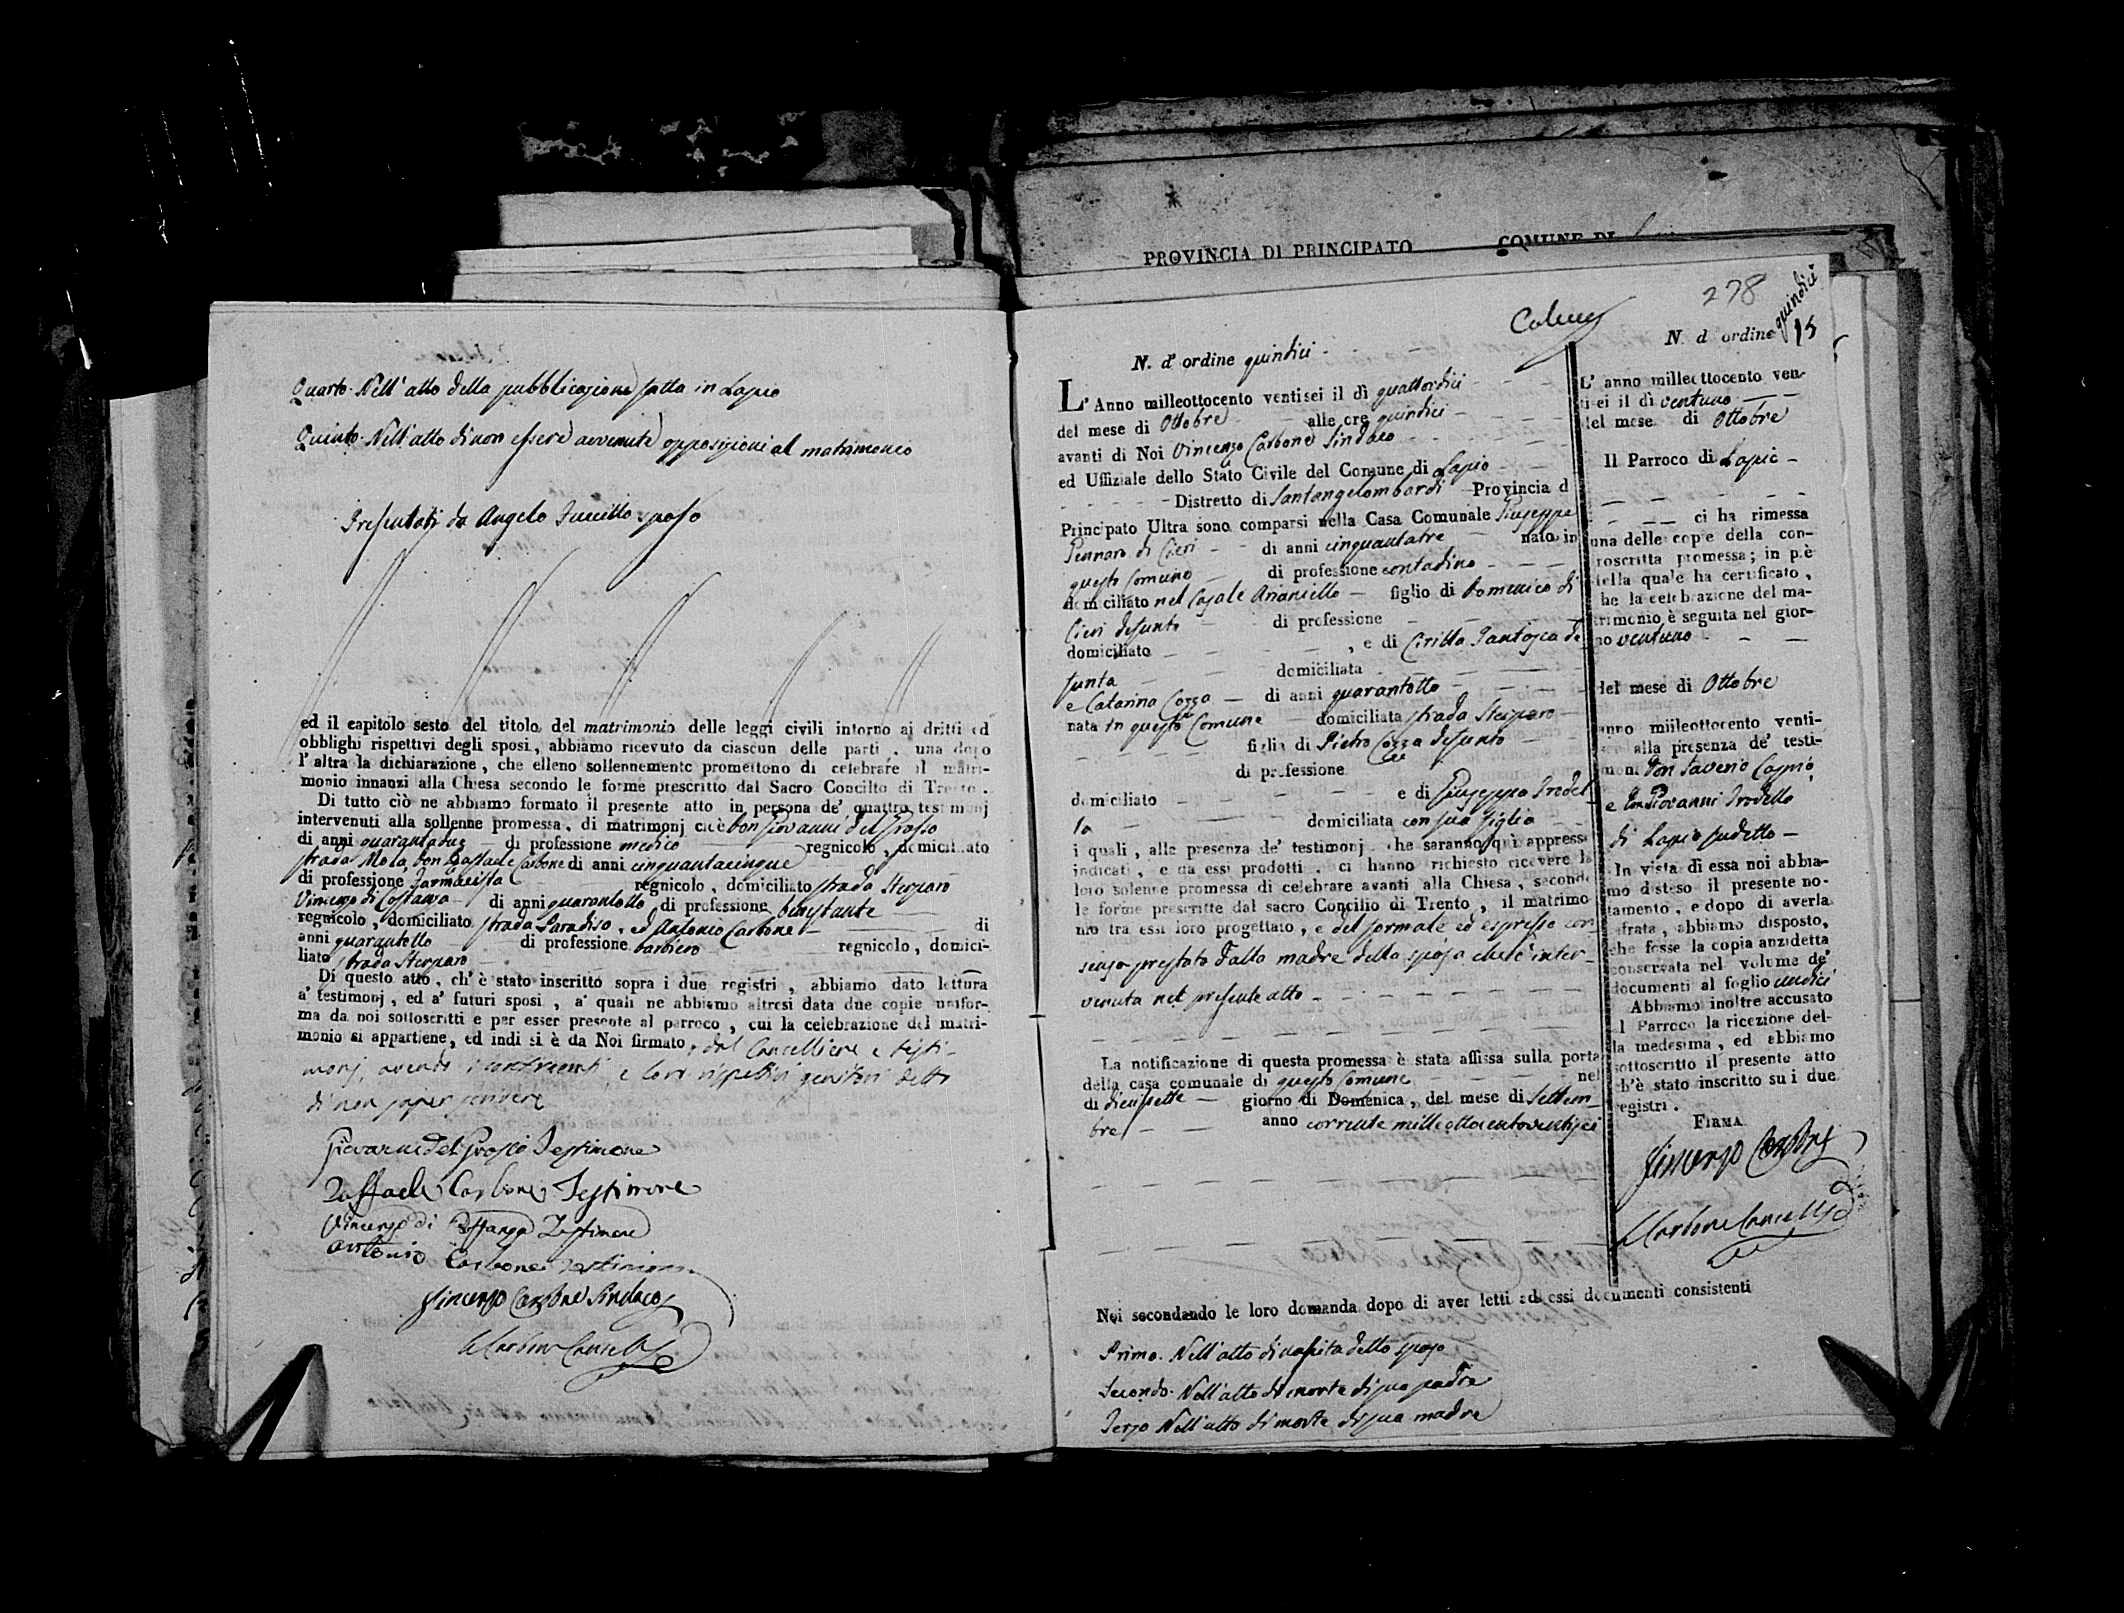 Quarto. Nell' atto della pubblicazione fatta in Lapio
Quinto. Nell' atto di non essere avvenute opposizioni al matrimonio
Presentati da Angelo sposo
ed il capitolo sesto del titolo del matrimonio delle leggi civili intorno ai dritti ed
obblighi rispettivi degli sposi, abbiamo ricevuto da ciascun delle parti, una dopo
l'altra la dichiarazione, che elleno sollennemente promettono di celebrare il matri-
monio innanzi alla Chiesa secondo le forme prescritto dal Sacro Concilto di Trento.
Di tutto ciò ne abbiamo formato il presente atto in persona de' quattro testimonj
intervenuti alla sollenne promessa, di matrimonj cioè Don Giovanni del Grosso
di anni quarantadue di professione medico regnicolo, domiciliato
strada Mola, Don Raffaele Carbone di anni cinquantacinque
di professione Farmacista regnicolo, domiciliato strada Sterparo
Vincenzo di Costanzo di anni quarantotto di professione benestante
regnicolo, domiciliato strada Paradiso, ed Antonio Carbone di
anni quarantotto di professione barbiero regnicolo, domici-
liato strada Sterparo
Di questo atto, ch' è stato inscritto sopra i due registri, abbiamo dato lettura
a' testimonj, ed a' futuri sposi, a' quali ne abbiamo altresì data due copie unifor-
ma da noi sottoscritti e per esser presente al parroco, cui la celebrazione del matri-
monio si appartiene, ed indi si è da Noi firmato, dal Cancelliere e testi-
monj, avendo i contraenti, e loro rispettivi genitori detto
di non saper scrivere
Giovanni del Grosso Testimone
Raffaele Carbone Testimone
Vincenzo di Costanzo Testimone
Antonio Carbone testimone
Vincenzo Carbone Sindaco
Carbone Cancelle
PROVINCIA DI PRINCIPATO COMUNE DI
278
N. d' ordine quindici
L' Anno milleottocento ventisei il dì quattordici
del mese di Ottobre alle ore quindici
avanti di Noi Vincenzo Carbone Sindaco
ed Uffiziale dello Stato Civile del Comune di Lapio
Distretto di Santangelombardi Provincia d
Principato Ultra sono comparsi nella Casa Comunale Giuseppe
Gennaro di Cieri di anni cinquantatre nato in
questo Comune di professione contadino
domiciliato nel Casale Arianiello figlio di Domenico di
Cieri defunto di professione
domiciliato , e di Ciritta Pantosca de
funta domiciliata
e Catarina Cozza di anni quarantotto
nata in questo Comune domiciliata strada Sterparo
figlia di Pietro Cozza defunto
di professione
domiciliato e di Giuseppa Trodel
la domiciliata con sua figlia
i quali, alla presenza de' testimonj che saranno qui appresso
indicati, e da essi prodotti, ci hanno richiesto ricevere la
loro solenne promessa di celebrare avanti alla Chiesa, secondo
le forme prescritte dal sacro Concilio di Trento, il matrimo
nio tra essi loro progettato, e del formale ed espresso con
senso prestato dalla madre della sposa che è inter-
venuta nel presente atto
La notificazione di questa promessa è stata affissa sulla porta
della casa comunale di questo Comune nel
dì diecissette giorno di Domenica, del mese di Settem-
bre anno corrente milleottocentoventisei
Noi secondando le loro domanda dopo di aver letti ad essi documenti consistenti
Primo. Nell' atto di nascita dello sposo
Secondo. Nell' atto di morte di suo padre
Terzo Nell' atto di morte di sua madre
N. d' ordine quindici
15
L' anno milleottocento ven-
tisei il dì ventuno
del mese di Ottobre
Il Parroco di Lapio
ci ha rimessa
una delle copie della con-
troscritta promessa; in piè
della quale ha certificato,
che la celebrazione del ma-
trimonio è seguita nel gior-
no ventuno
del mese di Ottobre
anno milleottocento venti-
sei alla presenza de' testi-
moni Don Saverio Caprio
e Don Giovanni Trodella
di Lapio sudetto
In vista di essa noi abbia-
mo disteso il presente no-
tamento, e dopo di averla
cifrata, abbiamo disposto,
che fosse la copia anzidetta
conservata nel volume de'
documenti al foglio
Abbiamo inoltre accusato
al Parroco la ricezione del-
la medesima, ed abbiamo
sottoscritto il presente atto
ch'è stato inscritto su i due
registri.
FIRMA
Vincenzo Carbone
Carbone Cancelle